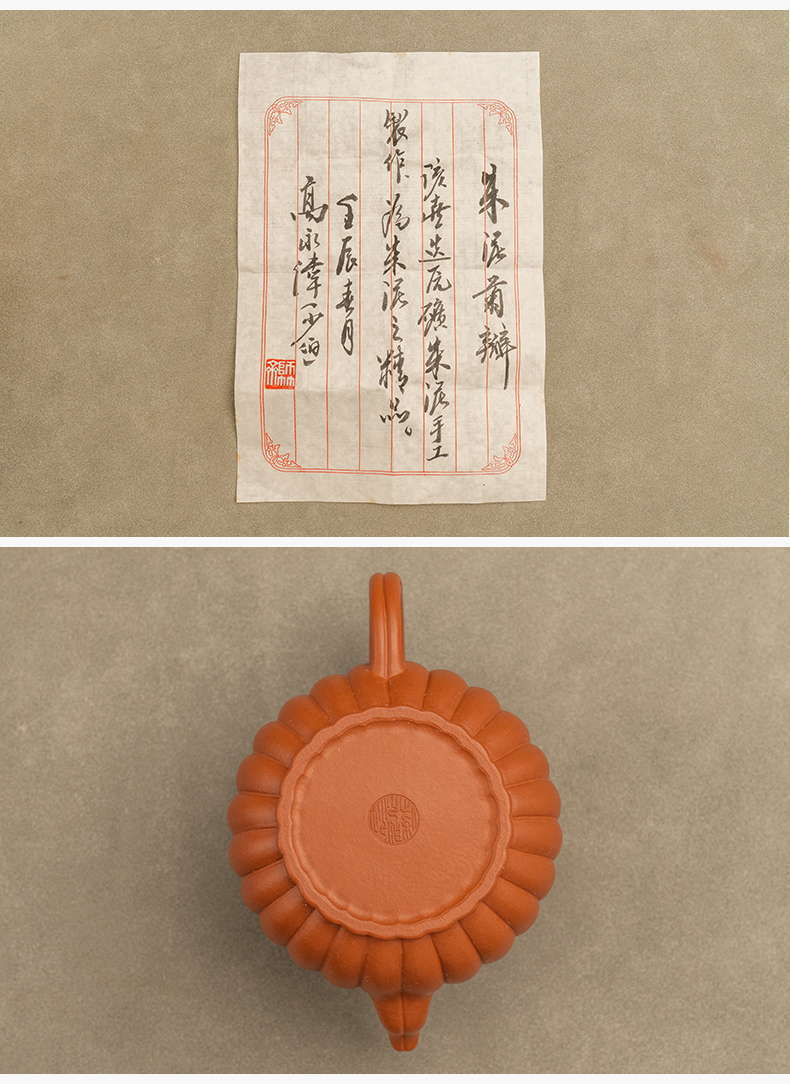 朱泥菊瓣
該壺选原礦朱泥手工
製作.為朱泥之精品。
壬辰春月
高永津